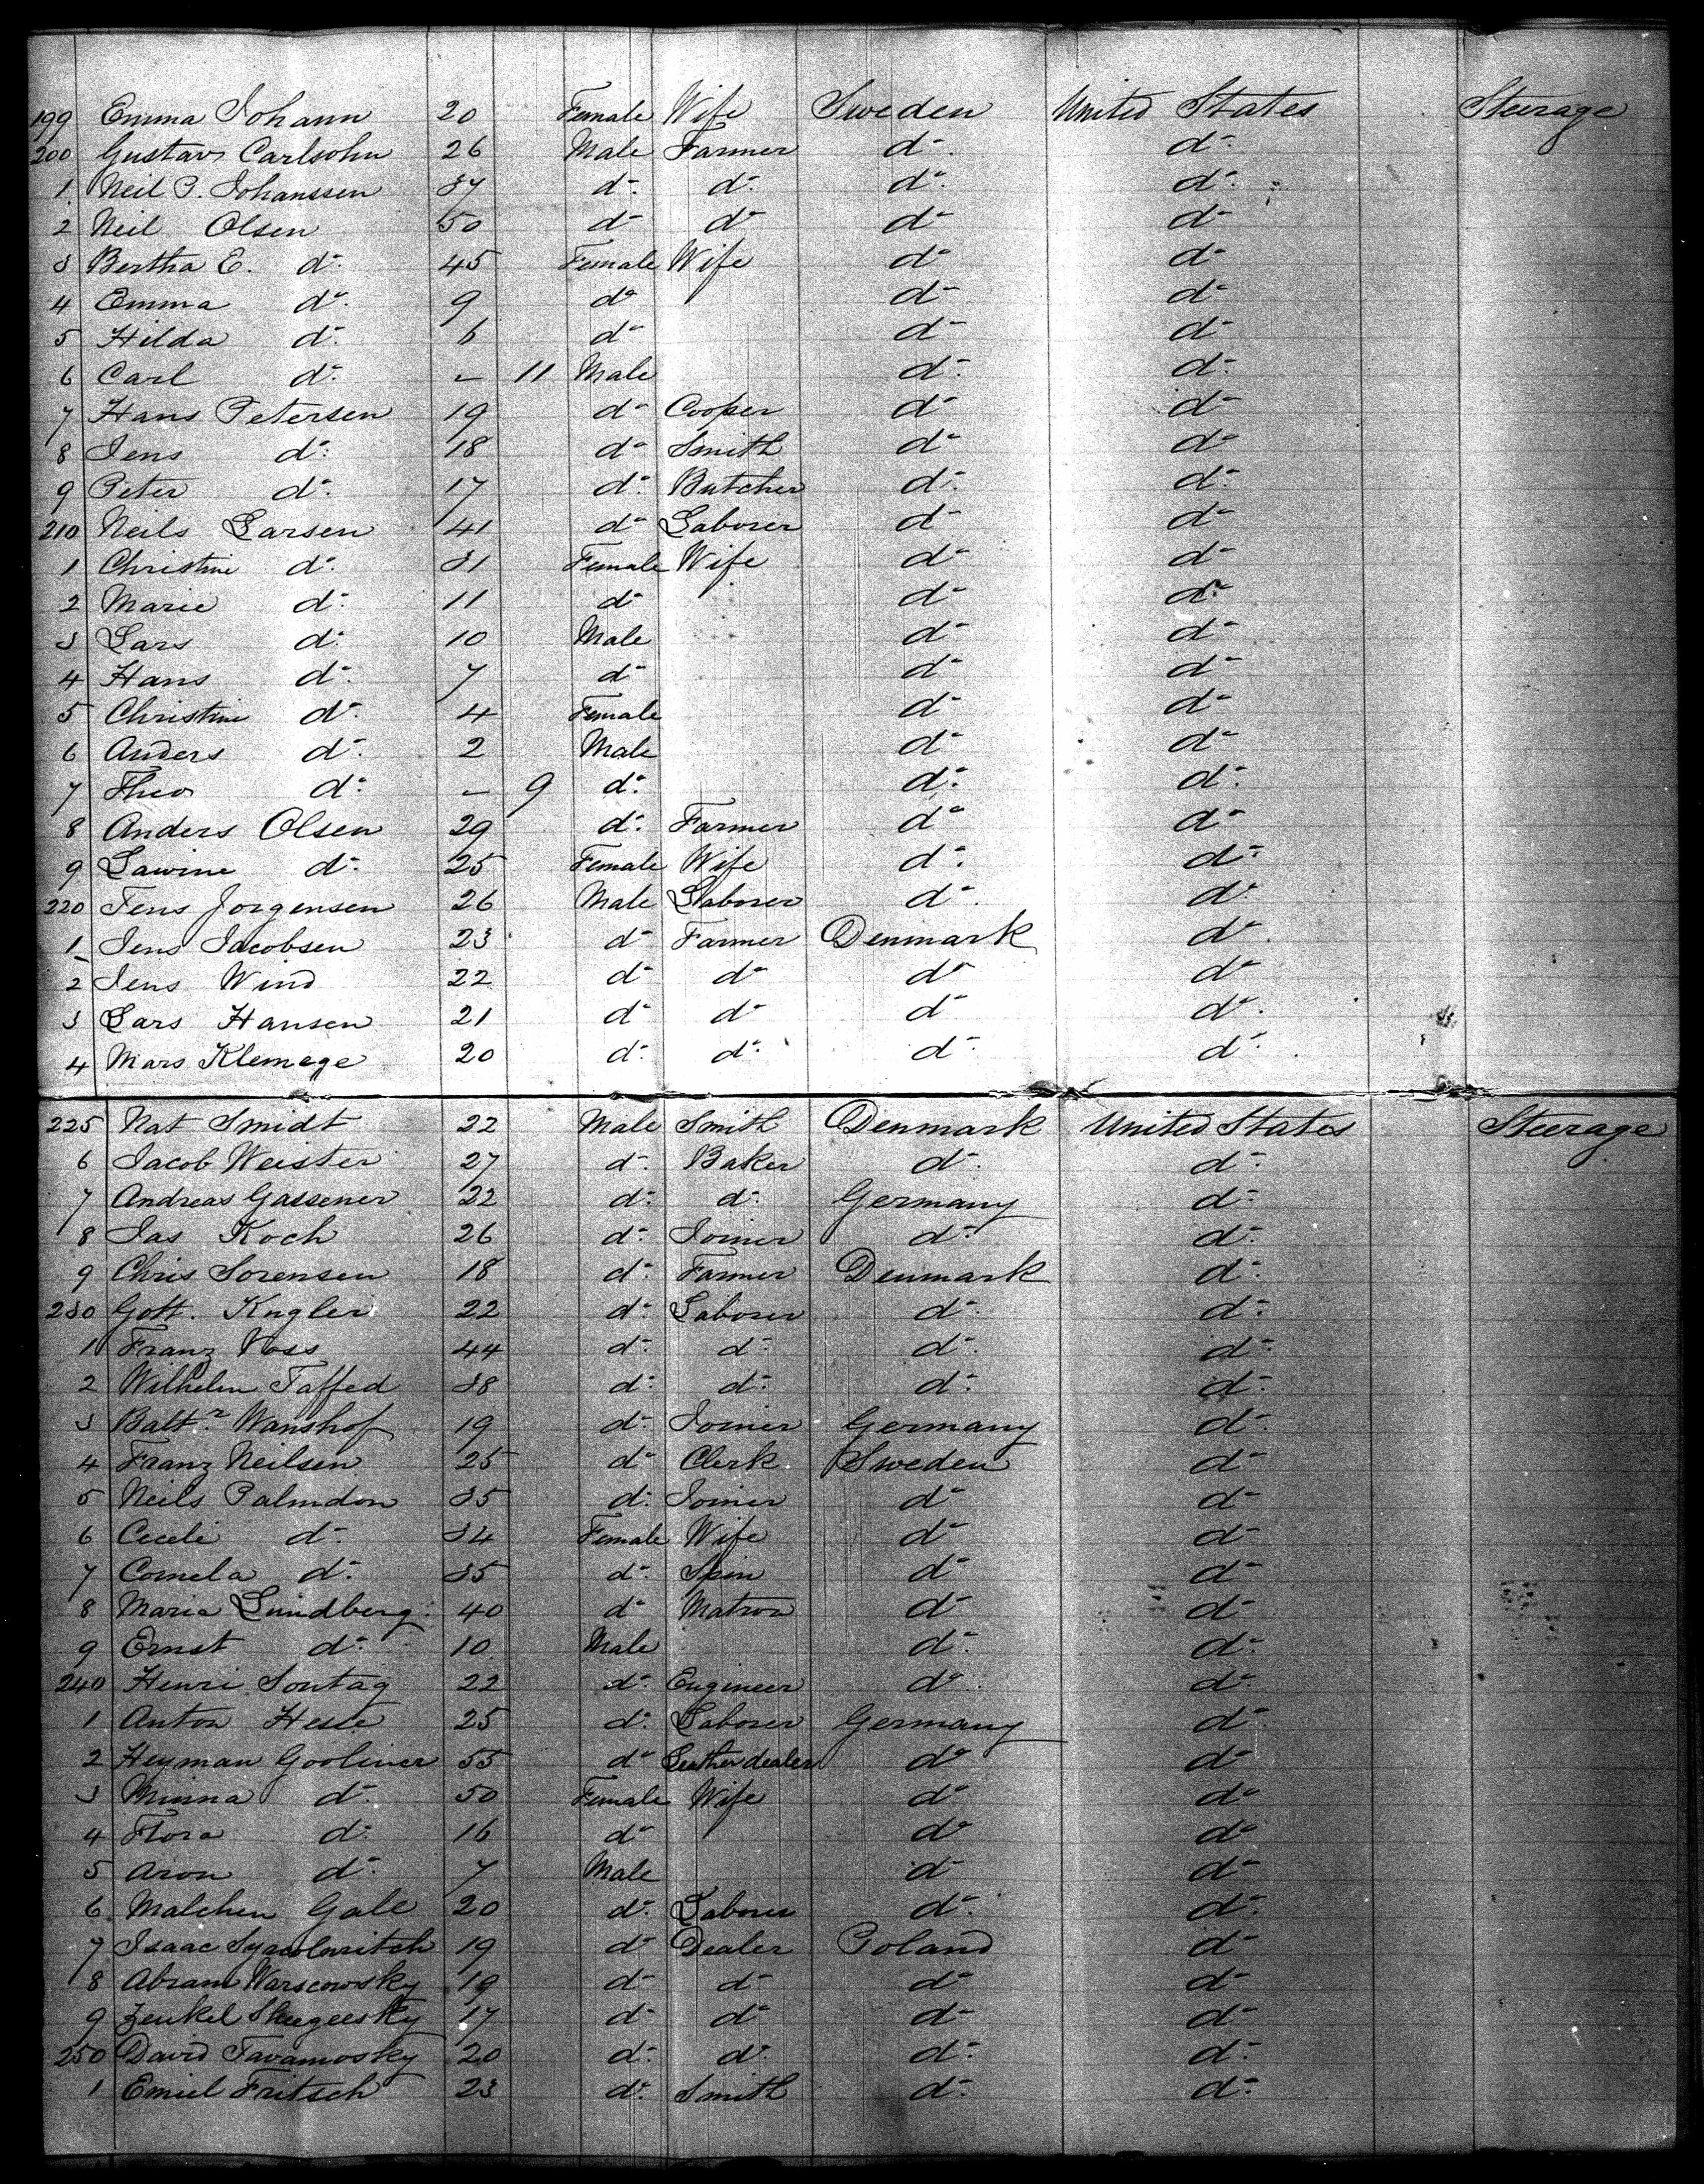 199 Emma Johann 20 Female Wife Sweden United States Steerage
200 Gustav Carlsohn 26 Male Farmer do do
1 Neil P. Johanssen 37 do do do do
2 Neil Olsen 50 do do do do
3 Bertha E. do 45 Female Wife do do
4 Emma do 9 do do do
5 Hilda do 6 do do do
6 Carl do - 11 Male do do
7 Hans Petersen 19 do Cooper do do
8 Jens do 18 do Smith do do
9 Peter do 17 do Butcher do do
210 Neils Larsen 41 do Laborer do do
1 Christine do 31 Female Wife do do
2 Marie do 11 do do do
3 Lars do 10 Male do do
4 Hans do 7 do do do
5 Christine do 4 Female do do
6 Anders do 2 Male do do
7 Theo do - 9 do do do
8 Anders Olsen 29 do Farmer do do
9 Lawine do 25 Female Wife do do
220 Jens Jorgensen 26 Male Laborer do do
1 Jens Jacobsen 23 do Farmer Denmark do
2 Jens Wind 22 do do do do
3 Lars Hansen 21 do do do do
4 Mars Klemege 20 do do do do
225 Nat Smidt 22 Male Smith Denmark United States Steerage
6 Jacob Weister 27 do Baker do do
7 Andreas Gassener 22 do do Germany do
8 Jas Koch 26 do Joiner do do
9 Chris Sorensen 18 do Farmer Denmark do
230 Gott. Kugler 22 do Laborer do do
1 Franz Voss 44 do do do do
2 Wilhelm Taffed 38 do do do do
3 Baltr Wanshof 19 do Joiner Germany do
4 Franz Neilsen 25 do Clerk Sweden do
5 Neils Palmdon 35 do Joiner do do
6 Cecele do 34 Female Wife do do
7 Comela do 35 do Spin do do
8 Maria Lundberg 40 do Matron do do
9 Ernst do 10 Male do do
240 Henri Sontag 22 do Engineer do do
1 Anton Hesse 25 do Laborer Germany do
2 Heyman Gooliner 55 do Leather dealer do do
3 Minna do 50 Female Wife do do
4 Flora do 16 do do do
5 Aron do 7 Male do do
6 Malchen Gale 20 do Laborer do do
7 Isaac 19 do Dealer Poland do
8 Abram Warscowsky 19 do do do do
9 Zenkel 17 do do do do
250 David Tavamosky 20 do do do do
1 Emiel Fritsch 23 do Smith do do